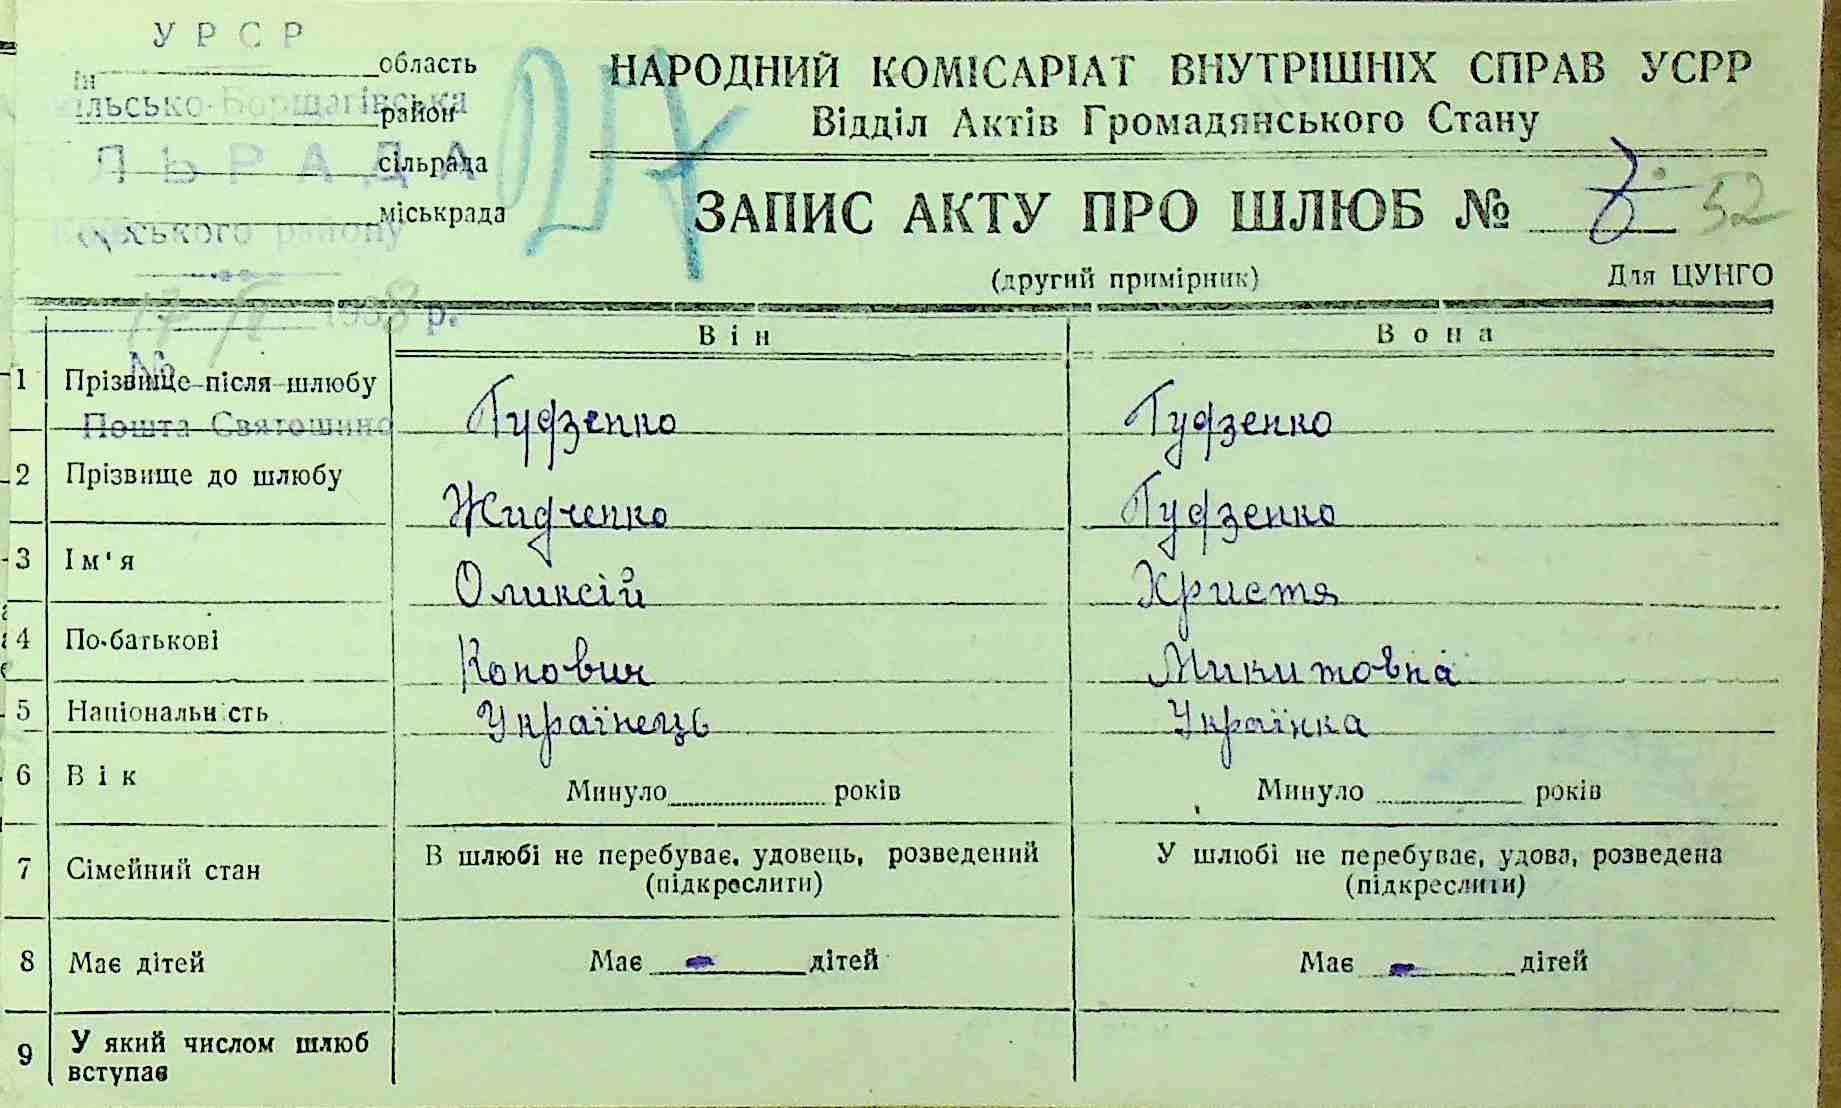 УРСР
область
ільсько-Борщагівська
район
ЛЬРАДА
сільрада
міськрада
ського району
17 1938 р.
№
Пошта Святошино
НАРОДНИЙ КОМІСАРІАТ ВНУТРІШНІХ СПРАВ УСРР
Відділ Актів Громадянського Стану
ЗАПИС АКТУ ПРО ШЛЮБ № 52
(другий примірник) Для ЦУНГО
Він Вона
1 Прізвище після шлюбу Гудзенко Гудзенко
2 Прізвище до шлюбу Жидченко Гудзенко
3 Ім'я Оликсій Христя
4 По-батькові Конович Микитовна
5 Національність Українець Українка
6 Вік Минуло років Минуло років
7 Сімейний стан В шлюбі не перебуває, удовець, розведений У шлюбі не перебуває, удова, розведена
(підкреслити) (підкреслити)
8 Має дітей Має - дітей Має - дітей
9 У який числом шлюб
вступає